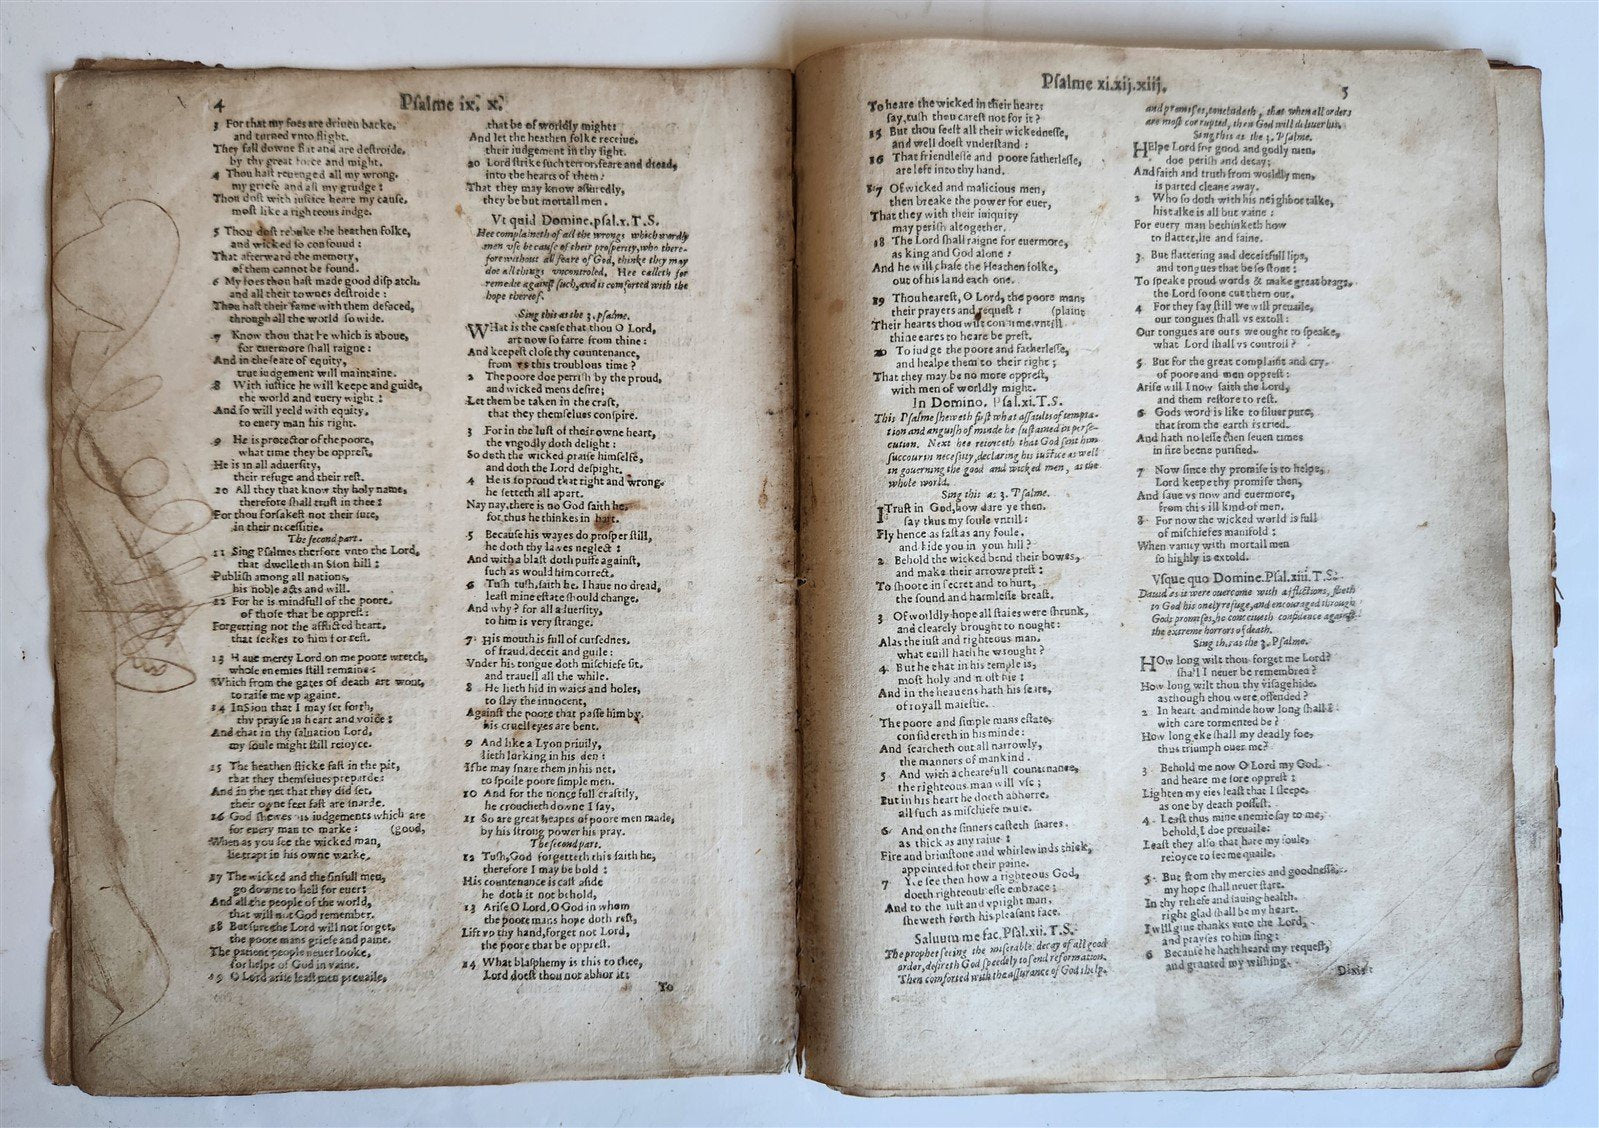 4
Psalme ix. x.
3 For that my foes are driuen backe,
and turned vnto flight.
They fall downe flat and are destroide,
by thy great force and might.
4 Thou hast reuenged all my wrong,
my griefe and all my grudge:
Thou dost with iustice heare my cause,
most like a righteous iudge.
5 Thou dost rebuke the heathen folke,
and wicked so confound:
That afterward the memory,
of them cannot be found.
6 My foes thou hast made good dispatch,
and all their townes destroide:
Thou hast their fame with them defaced,
through all the world so wide.
7 Know thou that he which is aboue,
for euermore shall raigne:
And in the seate of equity,
true iudgement will maintaine.
8 With iustice he will keepe and guide,
the world and euery wight:
And so will yeeld with equity,
to euery man his right.
9 He is protector of the poore,
what time they be opprest.
He is in all aduersity,
their refuge and their rest.
10 All they that know thy holy name,
therefore shall trust in thee:
For thou forsakest not their sute,
in their necessitie.
The second part.
11 Sing Psalmes therfore vnto the Lord,
that dwelleth in Sion hill:
Publish among all nations,
his noble acts and will.
12 For he is mindfull of the poore,
of those that be opprest:
Forgetting not the afflicted heart,
that seekes to him for rest.
13 Haue mercy Lord on me poore wretch,
whose enemies still remaine:
Which from the gates of death art wont,
to raise me vp againe.
14 In Sion that I may set forth,
thy prayse in heart and voice:
And that in thy saluation Lord,
my soule might still reioyce.
15 The heathen sticke fast in the pit,
that they themselues preparde:
And in the net that they did set,
their owne feet fast are snarde.
16 God shewes his iudgements which are
for euery man to marke: (good,
When as you see the wicked man,
lie trapt in his owne warke.
17 The wicked and the sinfull men,
go downe to hell for euer:
And all the people of the world,
that will not God remember.
18 But sure the Lord will not forget,
the poore mans griefe and paine.
The patient people neuer looke,
for helpe of God in vaine.
19 O Lord arise least men preuaile,
that be of worldly might:
And let the heathen folke receiue,
their iudgement in thy sight.
20 Lord strike such terror, feare and dread,
into the hearts of them:
That they may know assuredly,
they be but mortall men.
Vt quid Domine. psal. x. T. S.
Hee complaineth of all the wrongs which wordly
men vse because of their prosperity, who there-
fore without all feare of God, thinke they may
doe all things vncontroled, Hee calleth for
remedie against such, and is comforted with the
hope thereof.
Sing this as the 3. Psalme.
WHat is the cause that thou O Lord,
art now so farre from thine:
And keepest close thy countenance,
from vs this troublous time?
2 The poore doe perrish by the proud,
and wicked mens desire;
Let them be taken in the craft,
that they themselues conspire.
3 For in the lust of their owne heart,
the vngodly doth delight:
So doth the wicked praise himselfe,
and doth the Lord despight.
4 He is so proud that right and wrong,
he setteth all apart.
Nay nay, there is no God saith he,
for thus he thinkes in hart.
5 Because his wayes do prosper still,
he doth thy lawes neglect:
And with a blast doth puffe against,
such as would him correct.
6 Tush tush, saith he, I haue no dread,
least mine estate should change,
And why? for all aduersity,
to him is very strange.
7 His mouth is full of cursednes,
of fraud, deceit and guile:
Vnder his tongue doth mischiefe sit,
and trauell all the while.
8 He lieth hid in waies and holes,
to slay the innocent,
Against the poore that passe him by,
his cruell eyes are bent.
9 And like a Lyon priuily,
lieth lurking in his den:
If he may snare them in his net,
to spoile poore simple men.
10 And for the nonce full craftily,
he croucheth downe I say,
11 So are great heapes of poore men made,
by his strong power his pray.
The second part.
12 Tush, God forgetteth this saith he,
therefore I may be bold:
His countenance is cast aside
he doth it not behold,
13 Arise O Lord, O God in whom
the poore mans hope doth rest,
Lift vp thy hand, forget not Lord,
the poore that be opprest.
14 What blasphemy is this to thee,
Lord doest thou not abhor it:
To
Psalme xi. xij. xiij.
5
To heare the wicked in their heart:
say, tush thou carest not for it?
15 But thou seest all their wickednesse,
and well doest vnderstand:
16 That friendlesse and poore fatherlesse,
are left into thy hand.
17 Of wicked and malicious men,
then breake the power for euer,
That they with their iniquity
may perish altogether.
18 The Lord shall raigne for euermore,
as king and God alone:
And he will chase the Heathen folke,
out of his land each one.
19 Thou hearest, O Lord, the poore mans
their prayers and request: (plaint
Their hearts thou wilt confirme vntill
thine eares to heare be prest.
20 To iudge the poore and fatherlesse,
and healpe them to their right;
That they may be no more opprest,
with men of worldly might.
In Domino. Psal. xi. T. S.
This Psalme sheweth first what assaults of tempta-
tion and anguish of minde he sustained in perse-
cution. Next hee reioyceth that God sent him
succour in necessity, declaring his iustice as well
in gouerning the good and wicked men, as the
whole world.
Sing this as 3. Psalme.
I Trust in God, how dare ye then.
say thus my soule vntill:
Fly hence as fast as any foule,
and hide you in your hill?
2 Behold the wicked bend their bowes,
and make their arrowe prest:
To shoote in secret and to hurt,
the sound and harmlesse breast.
3 Of worldly hope all staies were shrunk,
and clearely brought to nought:
Alas the iust and righteous man,
what euill hath he wrought?
4 But he that in his temple is,
most holy and most hie:
And in the heauens hath his seate,
of royall maiestie.
The poore and simple mans estate,
considereth in his minde:
And searcheth out all narrowly,
the manners of mankind.
5 And with a chearefull countenance,
the righteous man will vse;
But in his heart he doeth abhorre,
all such as mischiefe muse.
6 And on the sinners casteth snares,
as thick as any raine:
Fire and brimstone and whirlewinds thick,
appointed for their paine.
7 Ye see then how a righteous God,
doeth righteousnesse embrace;
And to the iust and vpright man,
sheweth forth his pleasant face.
Saluum me fac. Psal. xii. T. S.
The prophet seeing the miserable decay of all good
order, desireth God speedely to send reformation.
Then comforted with the assurance of Gods help,
and promises, concludeth, that when all orders
are most corrupted, then God will deliuer his.
Sing this as the 3. Psalme.
HElpe Lord for good and godly men,
doe perish and decay;
And faith and truth from worldly men,
is parted cleane away.
2 Who so doth with his neighbor talke,
his talke is all but vaine:
For euery man bethinketh how
to flatter, lie and faine.
3 But flattering and deceitfull lips,
and tongues that be so stout:
To speake proud words & make great brags,
the Lord soone cut them out.
4 For they say still we will preuaile,
our tongues shall vs extoll:
Our tongues are ours we ought to speake,
what Lord shall vs controll?
5 But for the great complaint and cry,
of poore and men opprest:
Arise will I now saith the Lord,
and them restore to rest.
6 Gods word is like to siluer pure,
that from the earth is tried.
And hath no lesse then seuen times
in fire beene purified.
7 Now since thy promise is to helpe,
Lord keepe thy promise then,
And saue vs now and euermore,
from this ill kind of men.
8 For now the wicked world is full
of mischiefes manifold:
When vanity with mortall men
so highly is extold.
Vsque quo Domine. Psal. xiii. T. S.
Dauid as it were ouercome with afflictions, fleeth
to God his onely refuge, and encouraged through
Gods promises, he conceiueth confidence against
the extreme horrors of death.
Sing this as the 3. Psalme.
HOw long wilt thou forget me Lord?
shall I neuer be remembred?
How long wilt thou thy visage hide,
as though thou were offended?
2 In heart and minde how long shall I
with care tormented be?
How long eke shall my deadly foe,
thus triumph ouer me?
3 Behold me now O Lord my God
and heare me sore opprest:
Lighten my eies least that I sleepe,
as one by death possest.
4 Least thus mine enemie say to me,
behold, I doe preuaile:
Least they also that hate my soule,
reioyce to see me quaile.
5 But from thy mercies and goodnesse,
my hope shall neuer start.
In thy reliefe and sauing health,
right glad shall be my heart.
I will giue thanks vnto the Lord,
and prayses to him sing:
6 Because he hath heard my request,
and granted my wishing.
Dixit